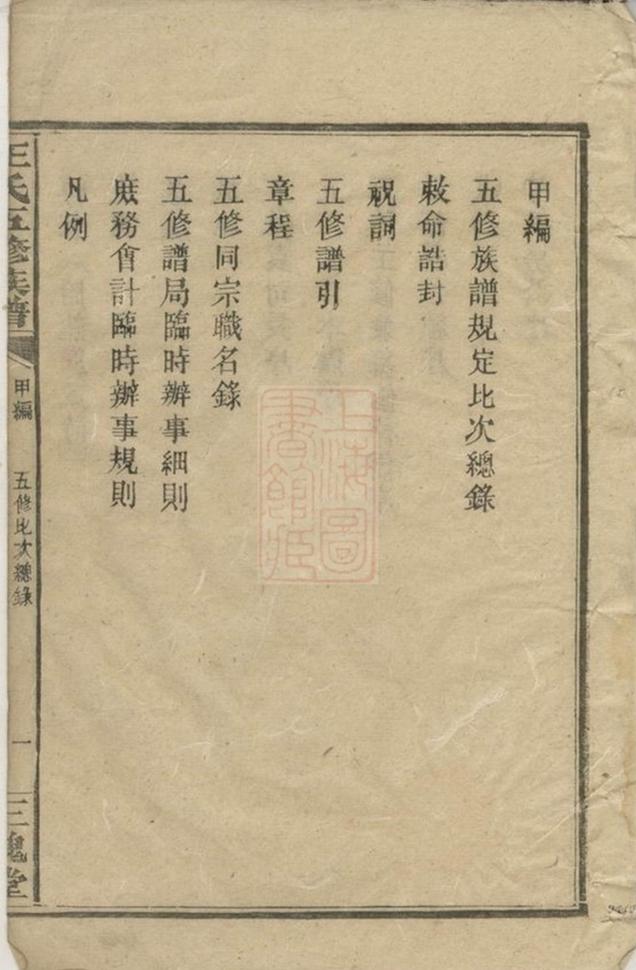 甲編
五修族譜規定比次總錄
敕命誥封
祝詞
五修譜引
章程
五修同宗職名錄
五修譜局臨時辦事細則
庶務會計臨時辦事規則
凡例
王氏五修族譜
甲編
五修比次總錄
一
三槐堂
上海圖
書館